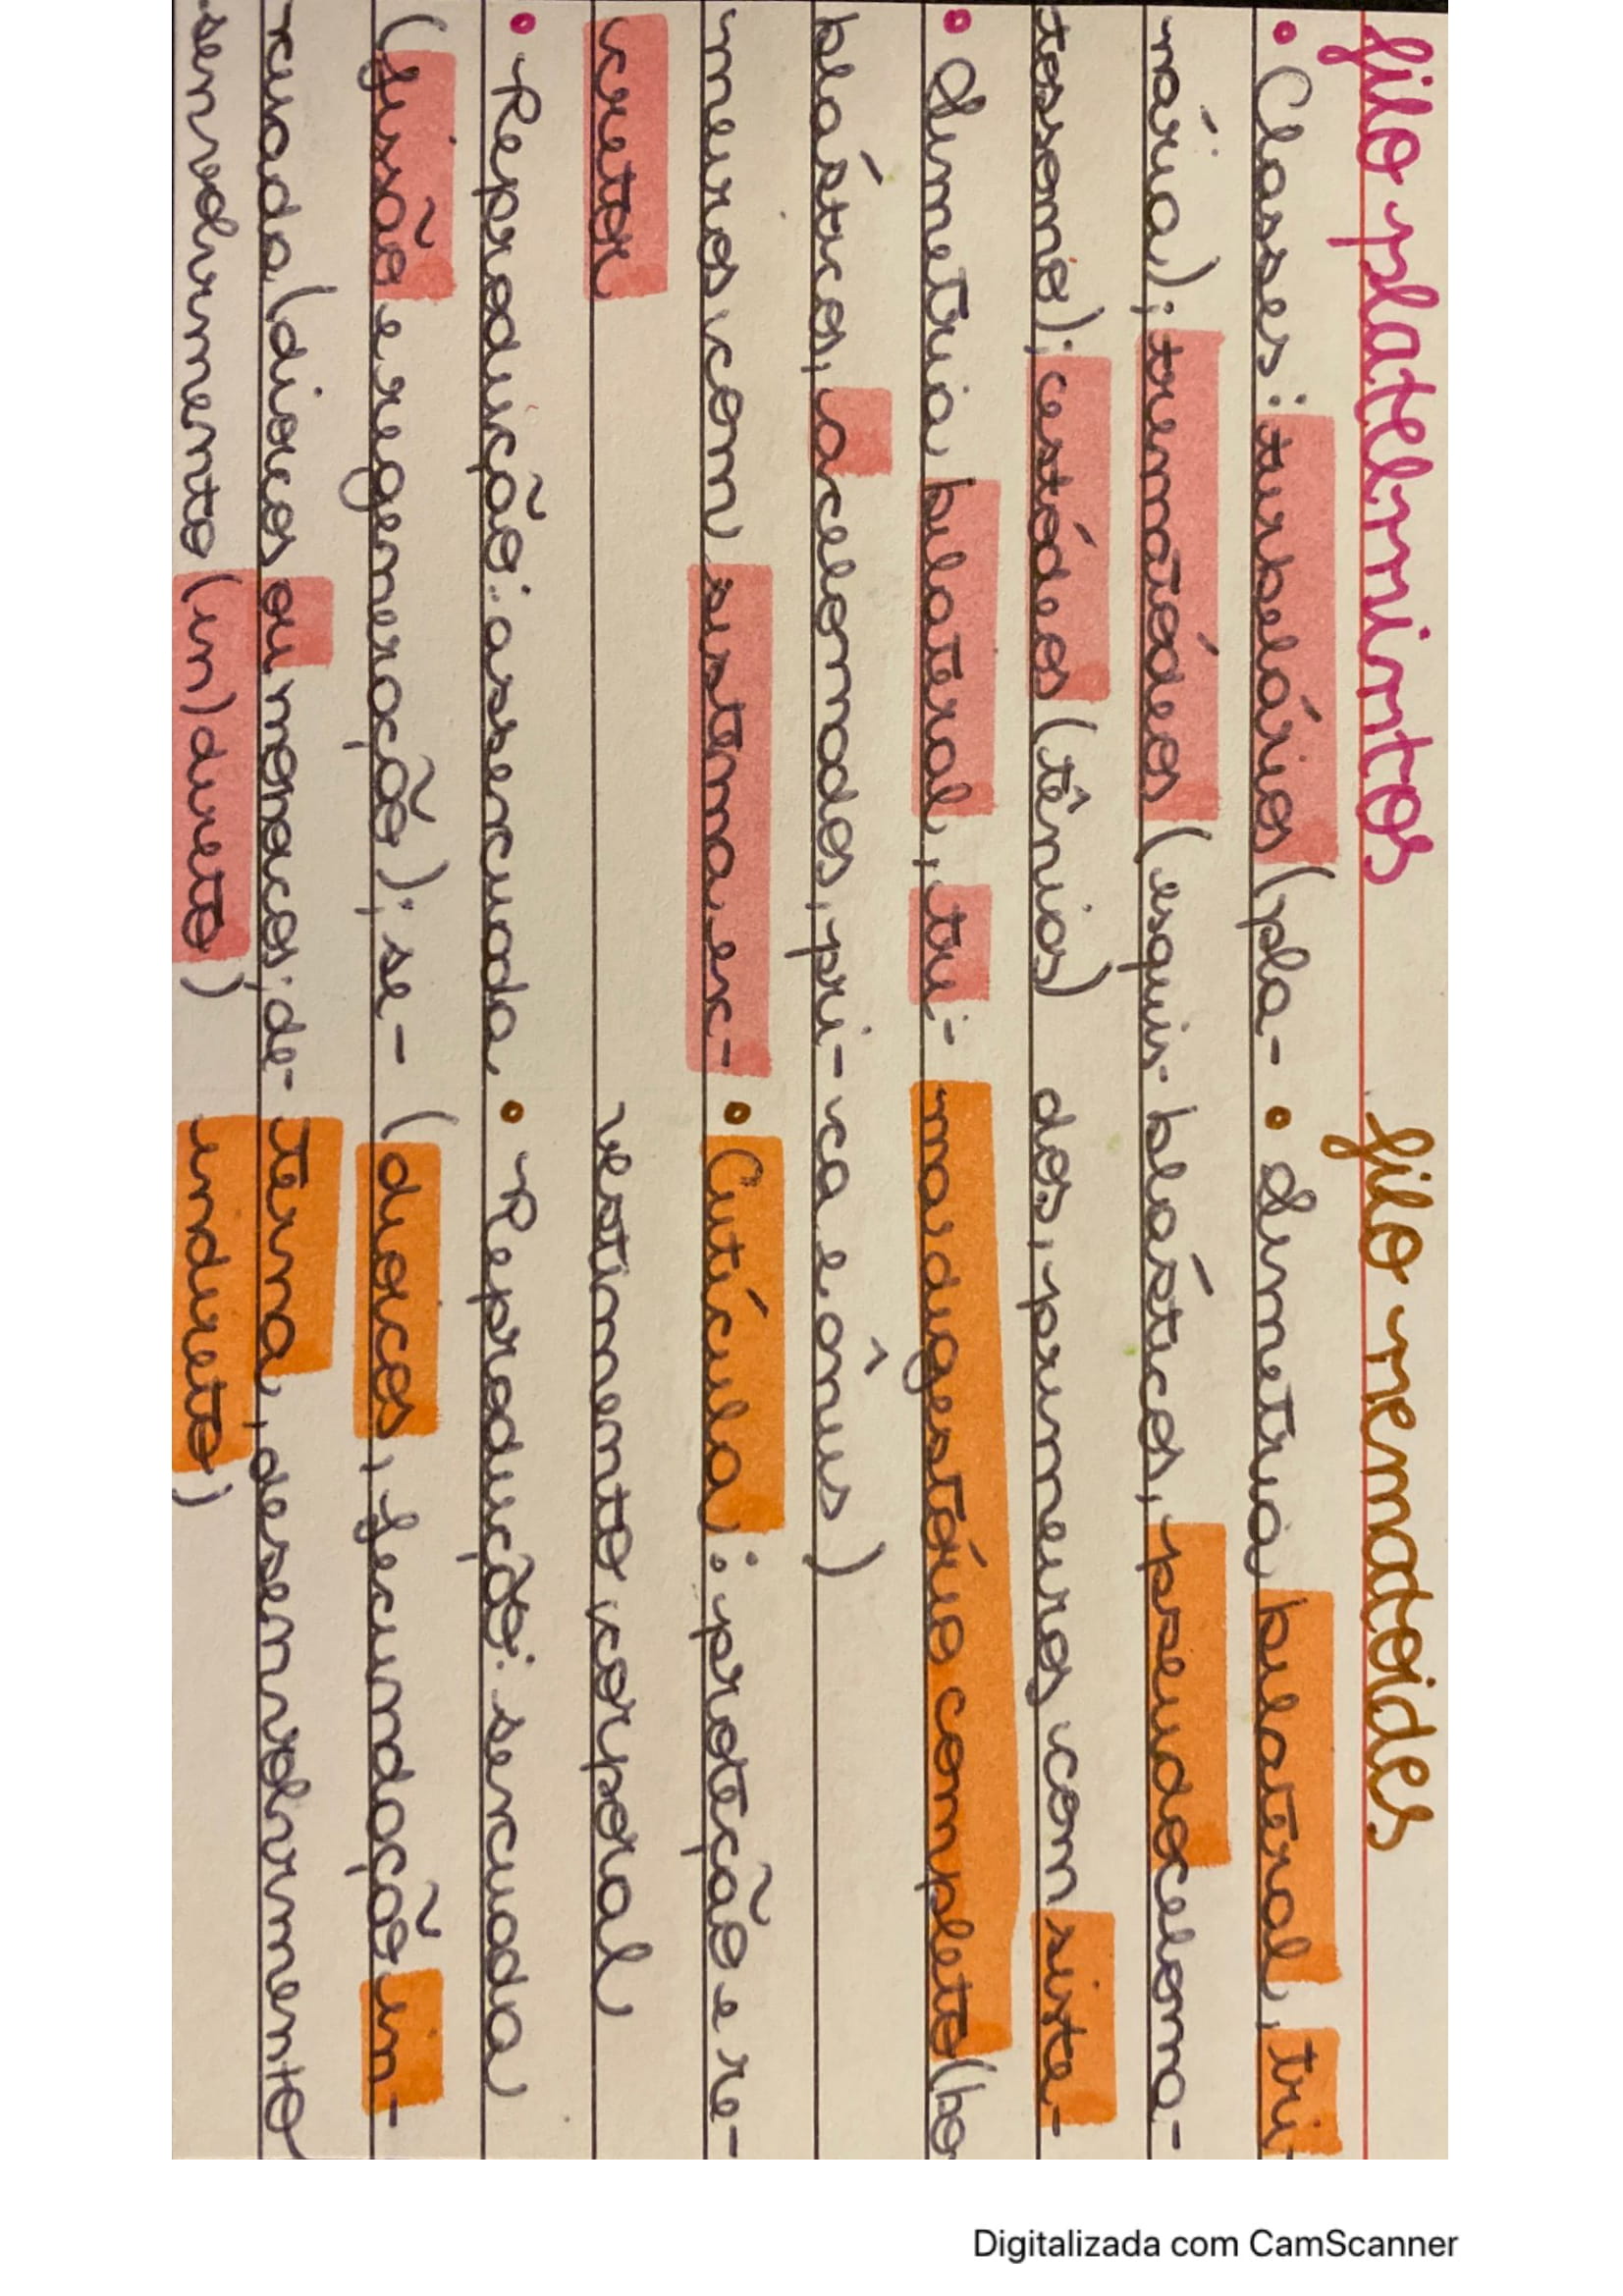 filo platelmintos
• Classes: turbelários (pla-
nária); trematódeos (esquis-
tossomo); cestódeos (tênias)
• Simetria bilateral, tri-
blásticos, acelomados, pri-
meiros com sistema ex-
cretor
• Reprodução: assexuada
(fissão e regeneração); se-
xuada (dioicos ou monoicos; de-
senvolvimento (in)direto)
filo nematoides
• Simetria bilateral, tri-
blásticos, pseudoceloma-
dos, primeiros com siste-
ma digestório completo (bo
ca e ânus)
• Cutícula: proteção e re-
vestimento corporal
• Reprodução: sexuada
(dioicos, fecundação in-
terna, desenvolvimento
indireto)
Digitalizada com CamScanner